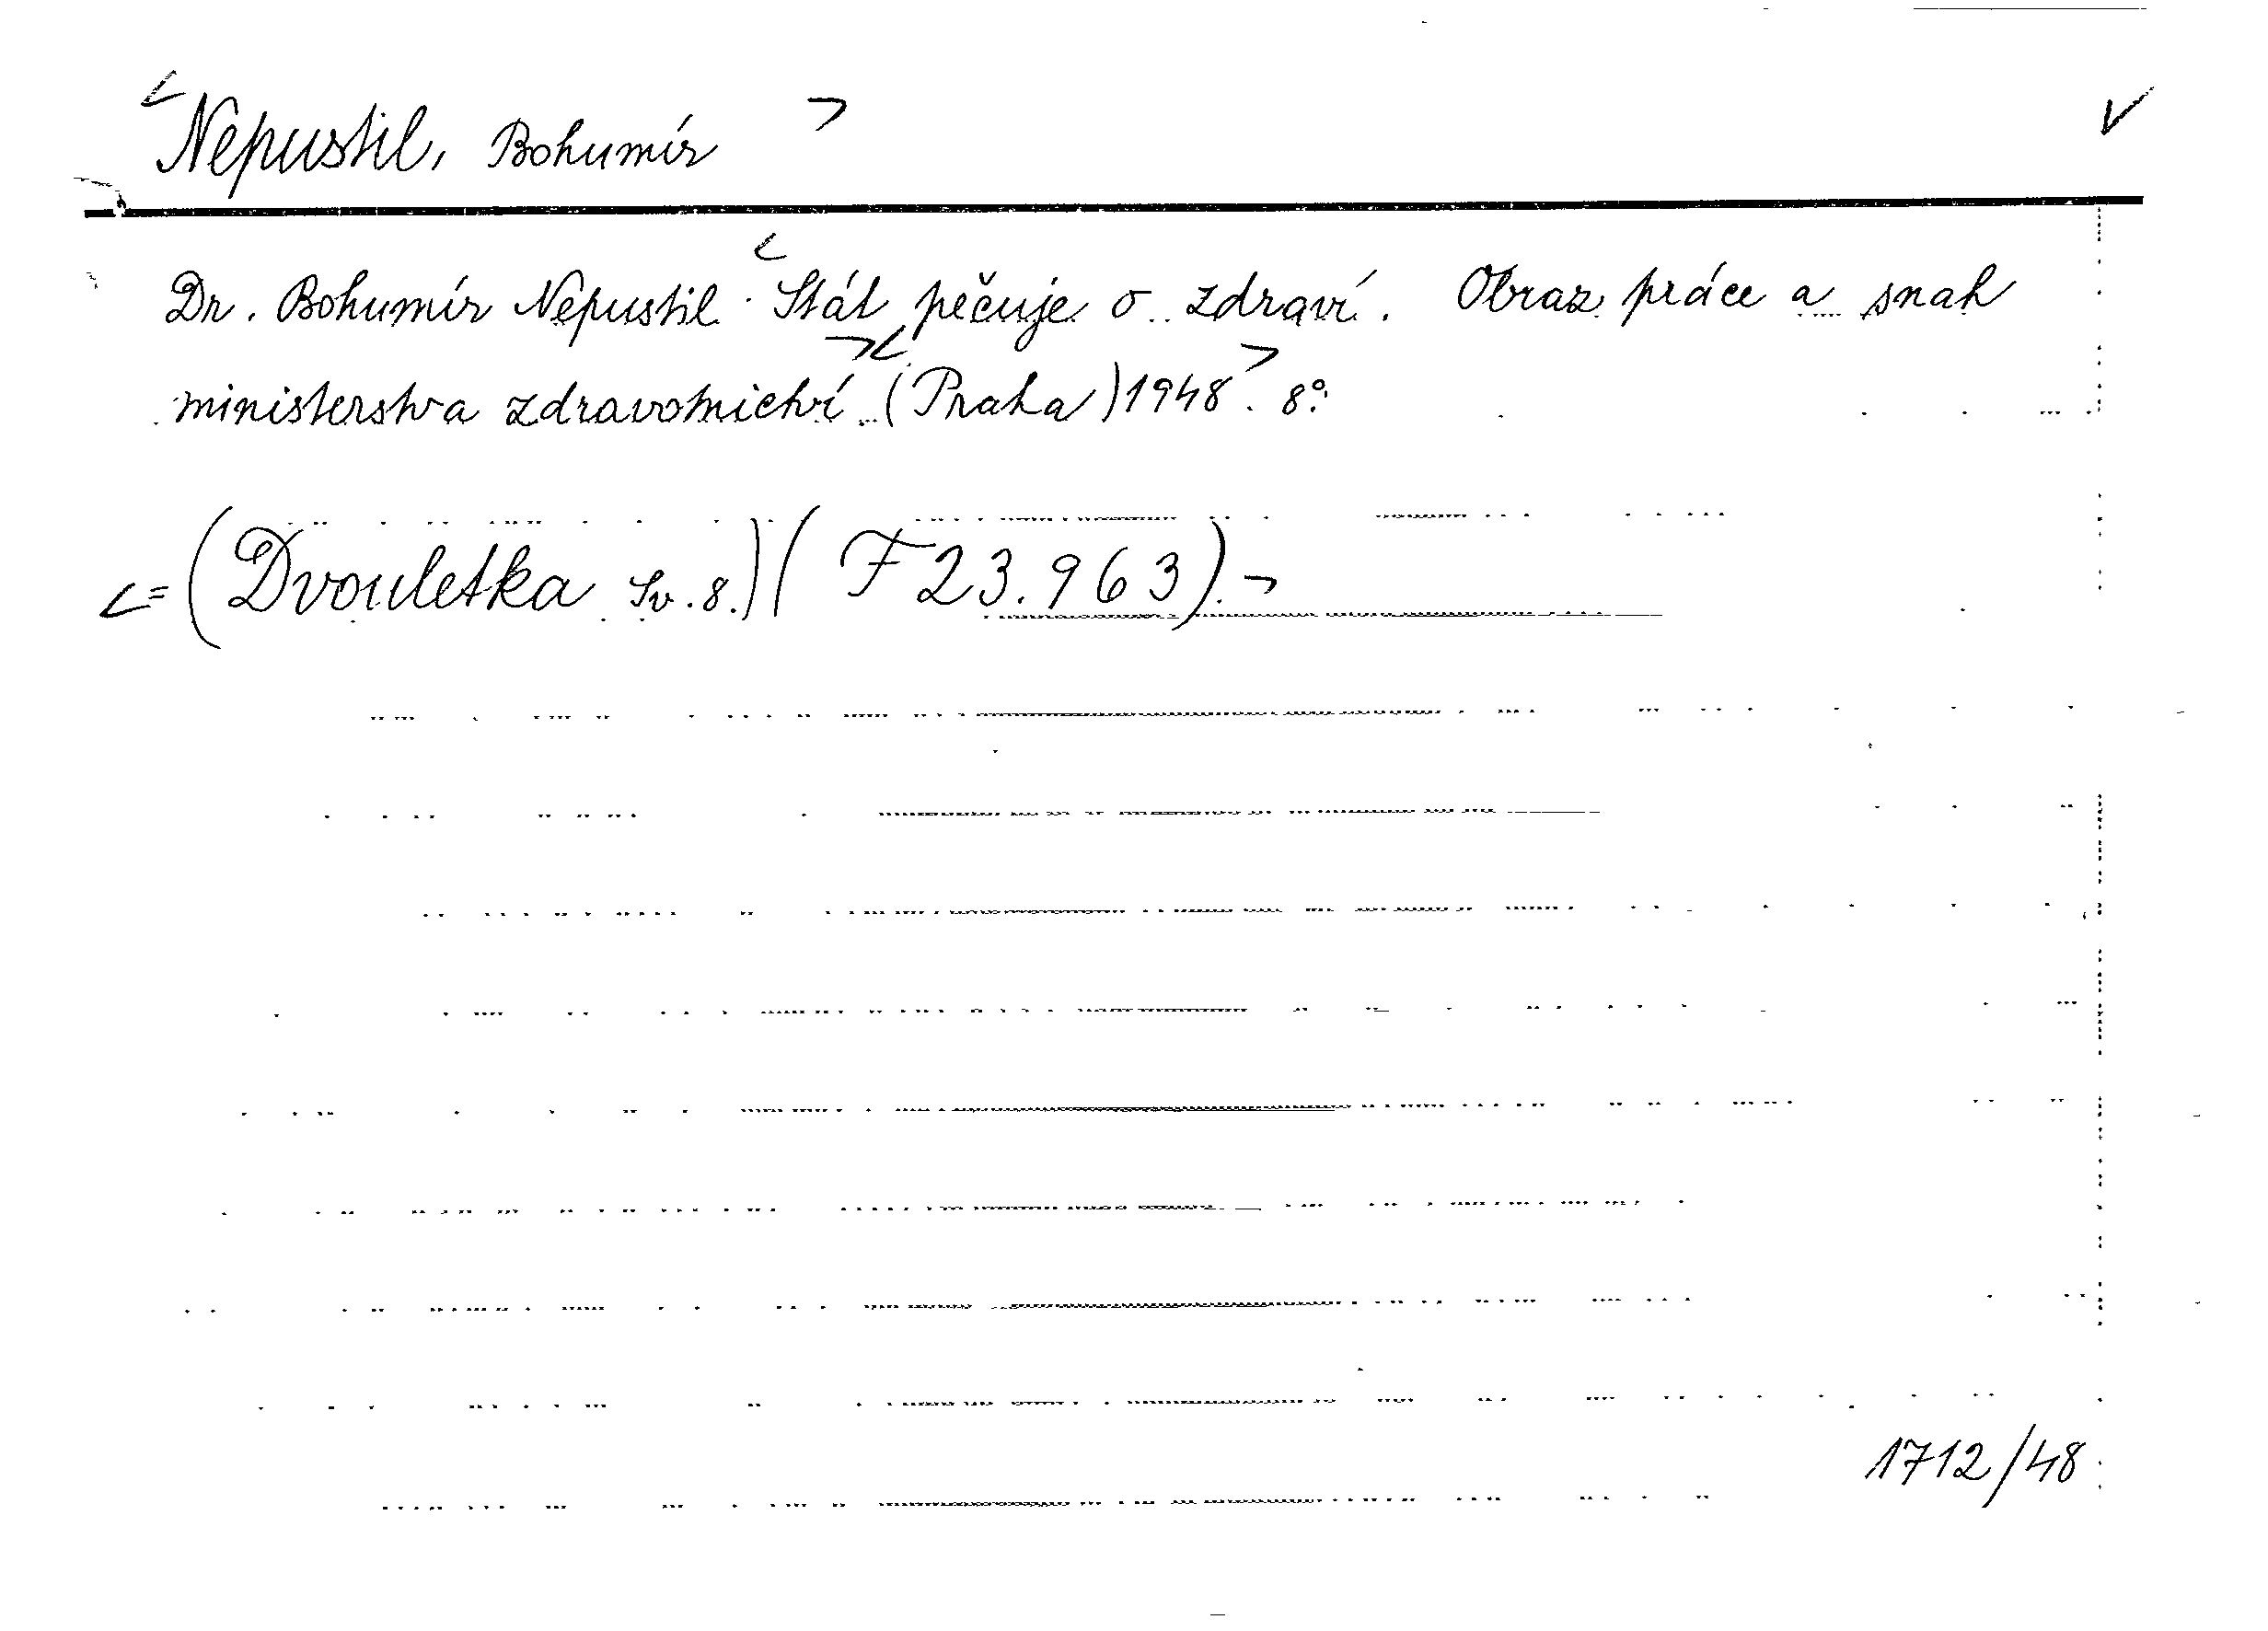 Nepustil, Bohumír
Dr. Bohumír Nepustil. Stát pečuje o zdraví. Obraz práce a snah
ministerstva zdravotnictví (Praha) 1948. 8°.
= (Dvouletka Sv. 8.) (F 23.963).
1712/48